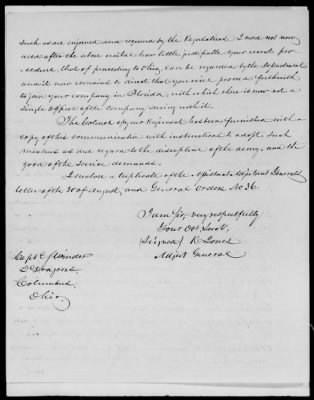 such as are enjoined and required by the Regulations. I need not now
add after the above notice how little justifiable your recent pro-
cedure, that of proceeding to Ohio, can be regarded by the Department
and it now remains to direct that you will proceed forthwith
to join your company in Florida, with which there is now not a
single officer of the Company serving with it.
The Colonel of your Regiment has been furnished with a
copy of this communication with instructions to adopt such
measures as due regard to the discipline of the army, and the
good of the service demands.
I enclose a duplicate of the Assistant Adjutant General's
letter of the 30 of August, and General Orders No 36.
I am Sir, very respectfully
Your Obt. Servt,
(Signed) R Jones
Adjut General
Capt E. S. Winder
2d Dragoons
Columbus,
Ohio,